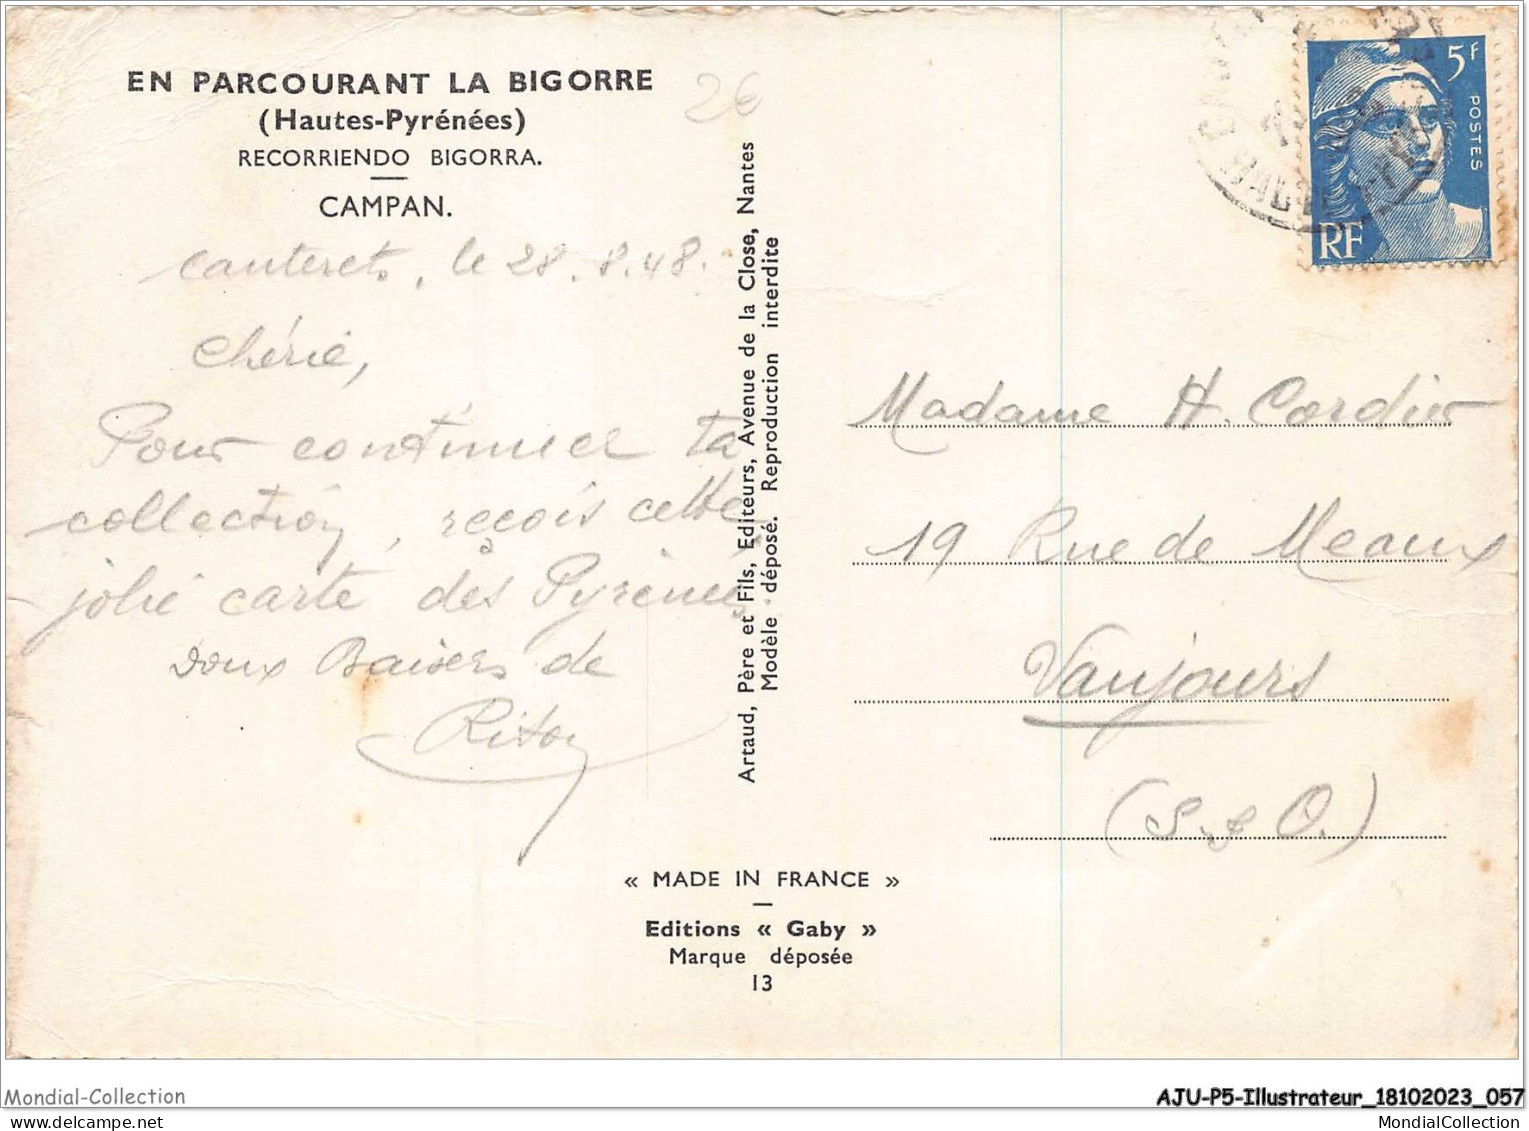 EN PARCOURANT LA BIGORRE
(Hautes-Pyrénées)
RECORRIENDO BIGORRA.
CAMPAN.
26
Cauterets, le 28.8.48.
Chérie,
Pour continuer ta
collection, reçois cette
jolie carte des Pyrénées.
Doux Baisers de
Riton
Artaud, Père et Fils, Editeurs, Avenue de la Close, Nantes
Modèle déposé. Reproduction interdite
« MADE IN FRANCE »
Editions « Gaby »
Marque déposée
13
5F
POSTES
RF
Madame H. Cordier
19 Rue de Meaux
Vaujours
(S. & O.)
Mondial-Collection
AJU-P5-Illustrateur_18102023_057
MondialCollection